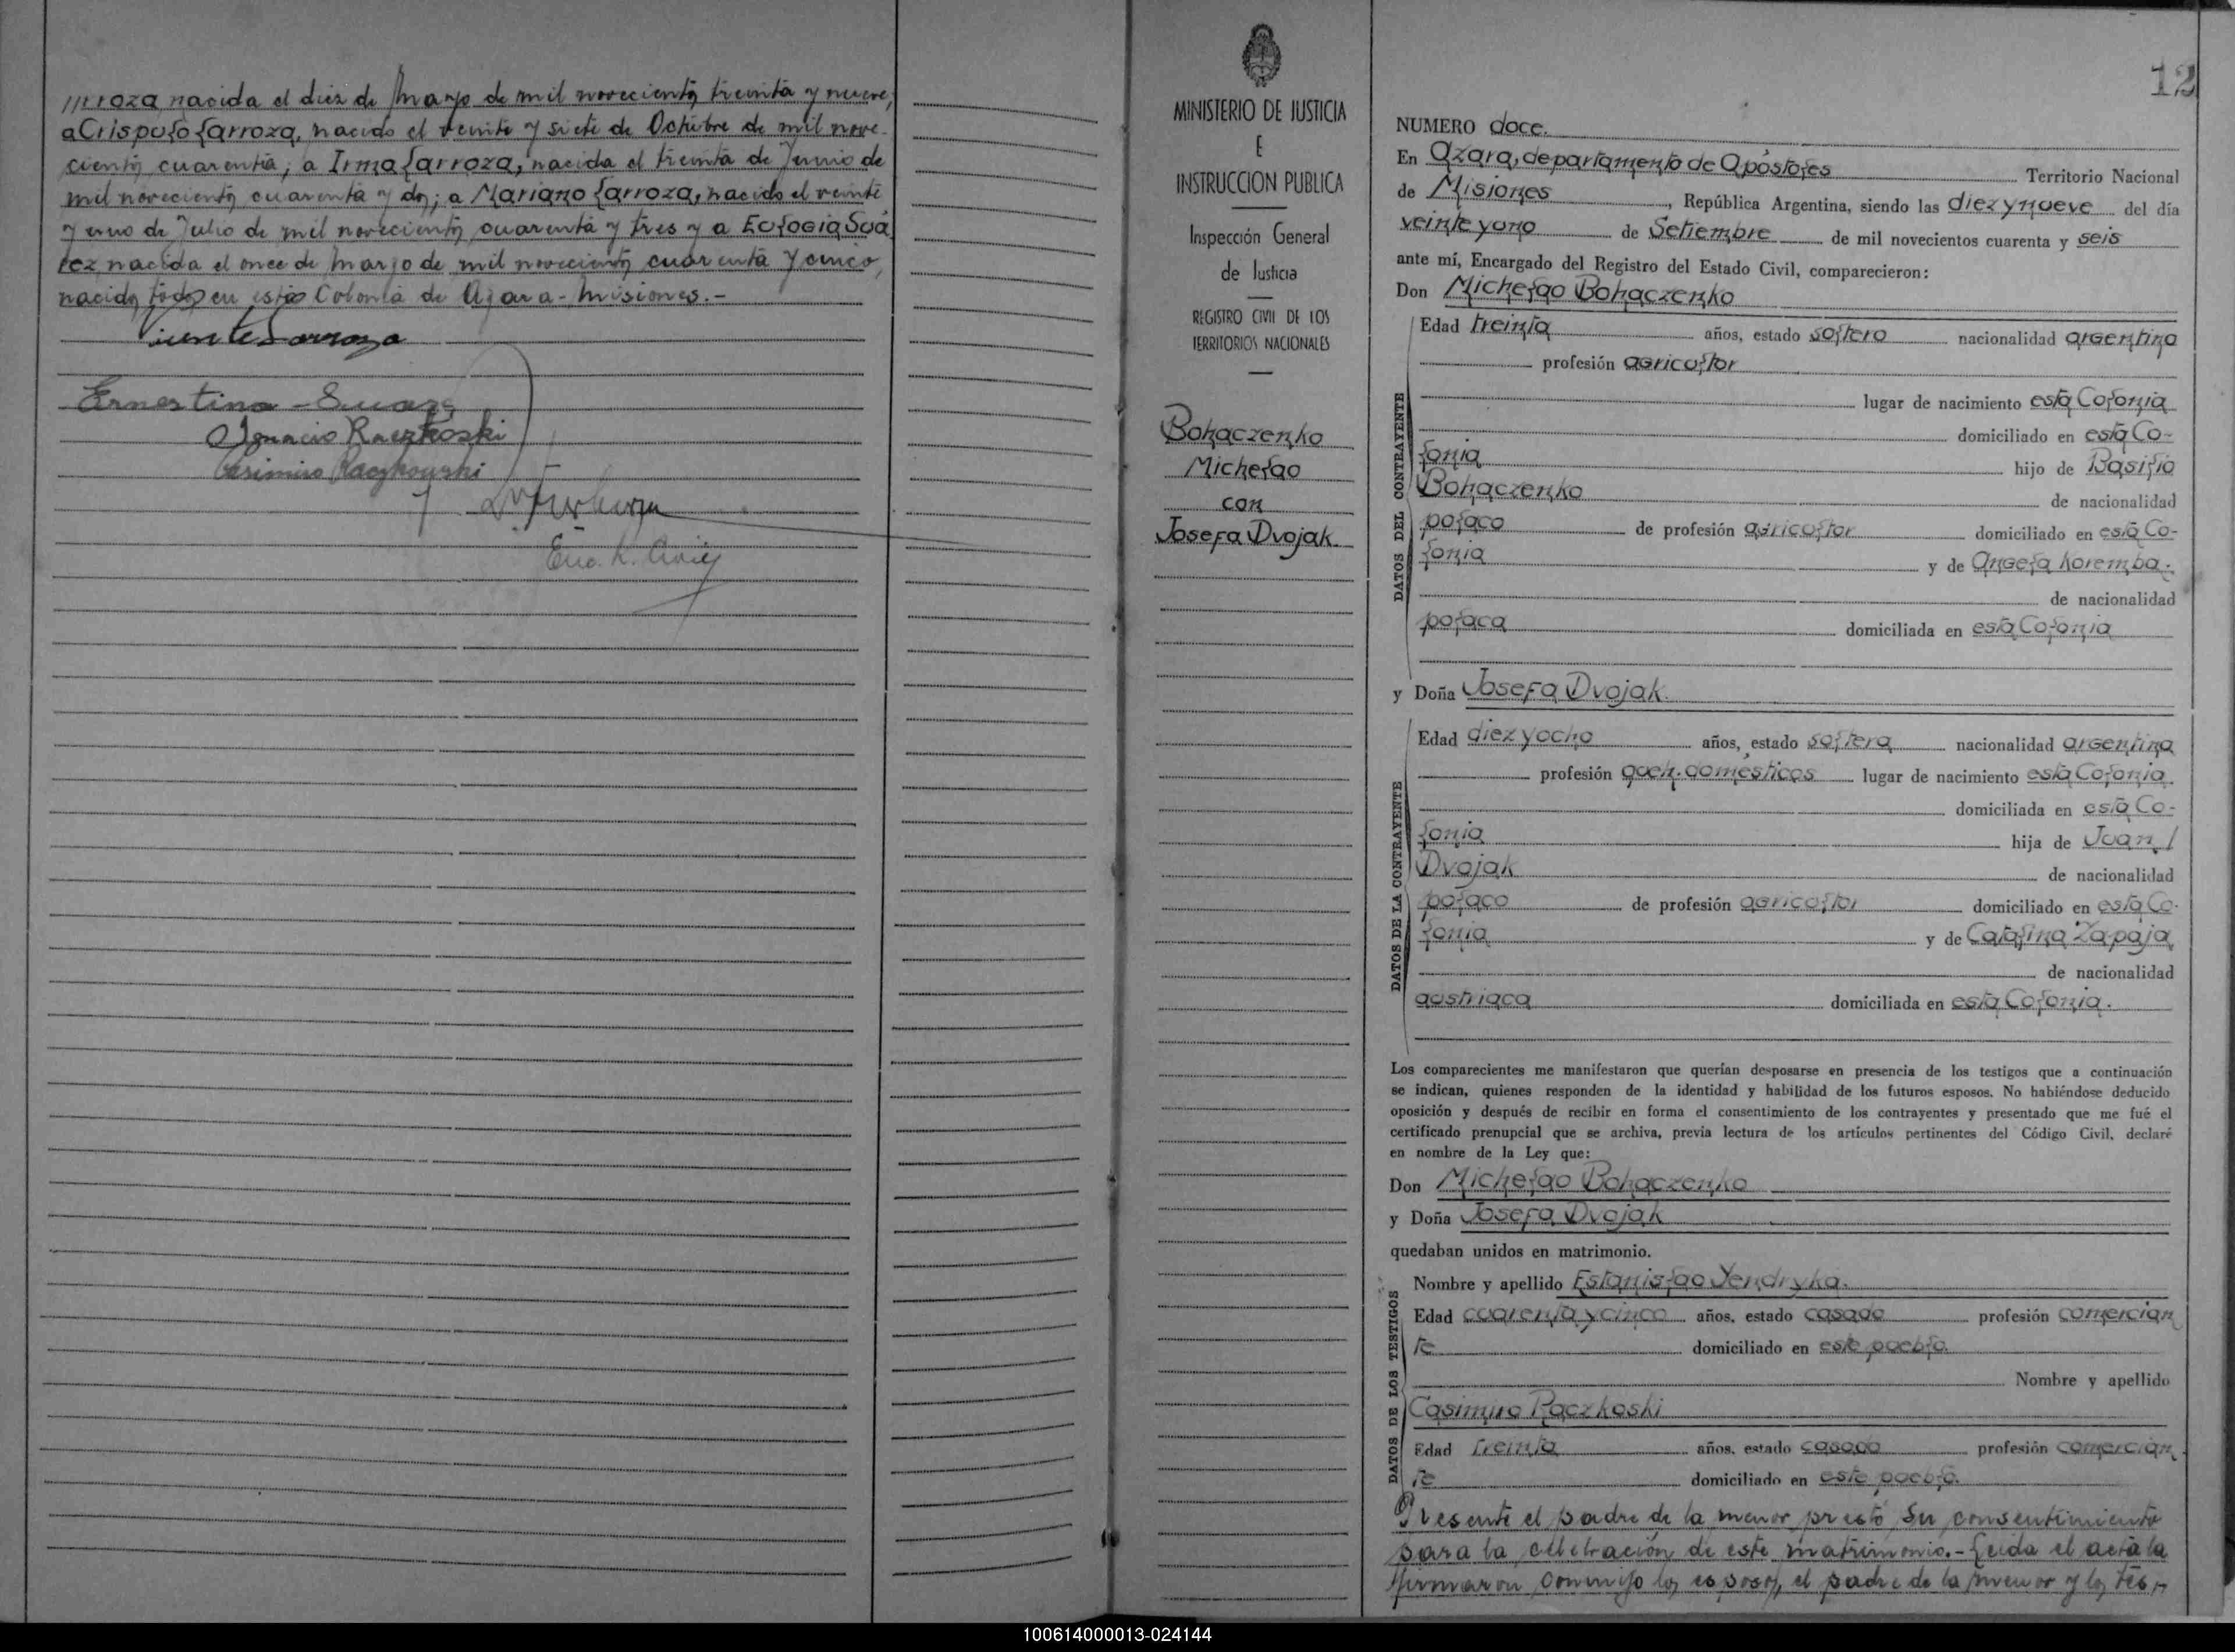 ///rroza nacida el diez de Marzo de mil novecientos treinta y nueve,
a Crispulo Larroza, nacido el veinte y siete de Octubre de mil nove-
cientos cuarenta; a Irma Larroza, nacida el treinta de Junio de
mil novecientos cuarenta y dos; a Mariano Larroza, nacido el veinte
y uno de Julio de mil novecientos cuarenta y tres y a Eulogia Suá
rez nacida el once de Marzo de mil novecientos cuarenta y cinco,
nacidos todos en esta Colonia de Azara-Misiones.-
Vicente Larroza
Ernestina - Suarez
Ignacio Raczkoski
Casimiro Raczkowski
Enc. R. Civil
MINISTERIO DE JUSTICIA
E
INSTRUCCION PUBLICA
Inspección General
de Justicia
REGISTRO CIVIL DE LOS
TERRITORIOS NACIONALES
Bohaczenko
Michelao
con
Josefa Dvojak.
12
NUMERO doce.
En Azara, departamento de Apóstoles Territorio Nacional
de Misiones, República Argentina, siendo las diez y nueve del día
veinte y uno de Setiembre de mil novecientos cuarenta y seis
ante mí, Encargado del Registro del Estado Civil, comparecieron:
Don Michelao Bohaczenko
DATOS DEL CONTRAYENTE
Edad treinta años, estado soltero nacionalidad argentino
profesión agricultor
lugar de nacimiento esta Colonia
domiciliado en esta Co-
lonia hijo de Basilio
Bohaczenko de nacionalidad
polaco de profesión agricultor domiciliado en esta Co-
lonia y de Angela Koremba.
de nacionalidad
polaca domiciliada en esta Colonia
y Doña Josefa Dvojak.
DATOS DE LA CONTRAYENTE
Edad diez y ocho años, estado soltera nacionalidad argentina
profesión queh. domésticos lugar de nacimiento esta Colonia
domiciliada en esta Co-
lonia hija de Juan /
Dvojak de nacionalidad
polaco de profesión agricultor domiciliado en esta Co-
lonia y de Catalina Zapaja
de nacionalidad
austriaca domiciliada en esta Colonia.
Los comparecientes me manifestaron que querían desposarse en presencia de los testigos que a continuación
se indican, quienes responden de la identidad y habilidad de los futuros esposos. No habiéndose deducido
oposición y después de recibir en forma el consentimiento de los contrayentes y presentado que me fué el
certificado prenupcial que se archiva, previa lectura de los artículos pertinentes del Código Civil, declaré
en nombre de la Ley que:
Don Michelao Bohaczenko
y Doña Josefa Dvojak
quedaban unidos en matrimonio.
DATOS DE LOS TESTIGOS
Nombre y apellido Estanislao Yendryka.
Edad cuarenta y cinco años, estado casado profesión comercian
te domiciliado en este pueblo.
Nombre y apellido
Casimiro Raczkoski
Edad treinta años, estado casado profesión comercian
te domiciliado en este pueblo.
Presente el padre de la menor prestó su consentimiento
para la celebración de este matrimonio.- Leida el acta la
firmaron conmigo los esposos, el padre de la menor y los tes-
100614000013-024144